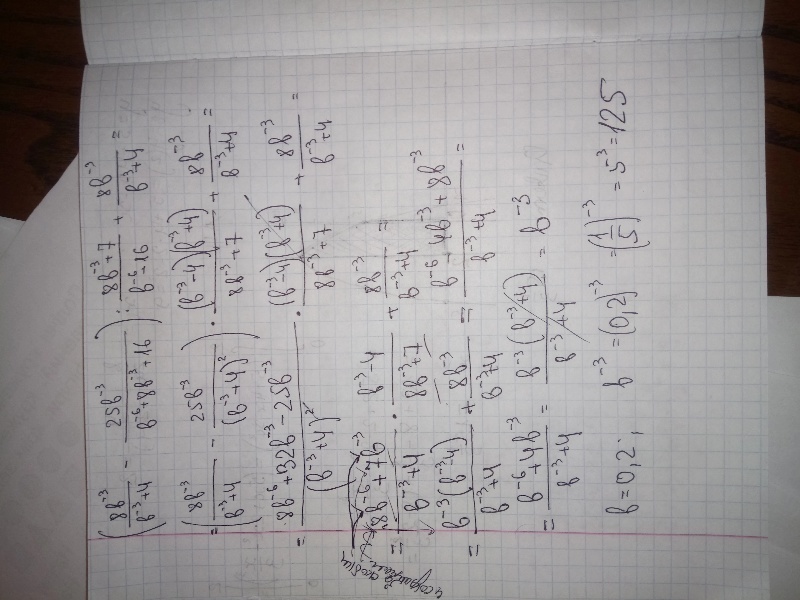 (8b⁻³/(b⁻³+4) − 25b⁻³/(b⁻⁶+8b⁻³+16)) : (8b⁻³+7)/(b⁻⁶−16) + 8b⁻³/(b⁻³+4) =
= (8b⁻³/(b⁻³+4) − 25b⁻³/(b⁻³+4)²) · (b⁻³−4)(b⁻³+4)/(8b⁻³+7) + 8b⁻³/(b⁻³+4) =
= (8b⁻⁶+32b⁻³−25b⁻³)/(b⁻³+4)² · (b⁻³−4)(b⁻³+4)/(8b⁻³+7) + 8b⁻³/(b⁻³+4) =
= (8b⁻⁶+7b⁻³)/(b⁻³+4) · (b⁻³−4)/(8b⁻³+7) + 8b⁻³/(b⁻³+4) =
= b⁻³(b⁻³−4)/(b⁻³+4) + 8b⁻³/(b⁻³+4) = (b⁻⁶−4b⁻³+8b⁻³)/(b⁻³+4) =
= (b⁻⁶+4b⁻³)/(b⁻³+4) = b⁻³(b⁻³+4)/(b⁻³+4) = b⁻³
b=0,2; b⁻³=(0,2)⁻³=(1/5)⁻³=5³=125